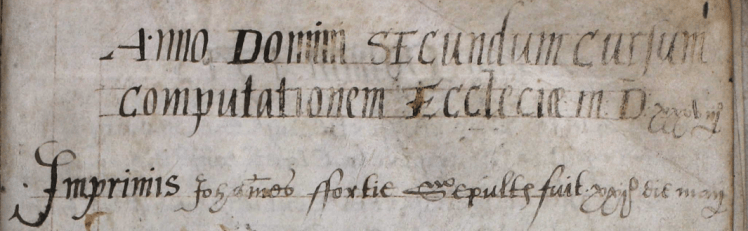 Anno Domini Secundum Cursum
Computationem Ecclecie m D xxxviij
Imprimis Johannes ffortie Sepultꝰ fuit xxijo die maij